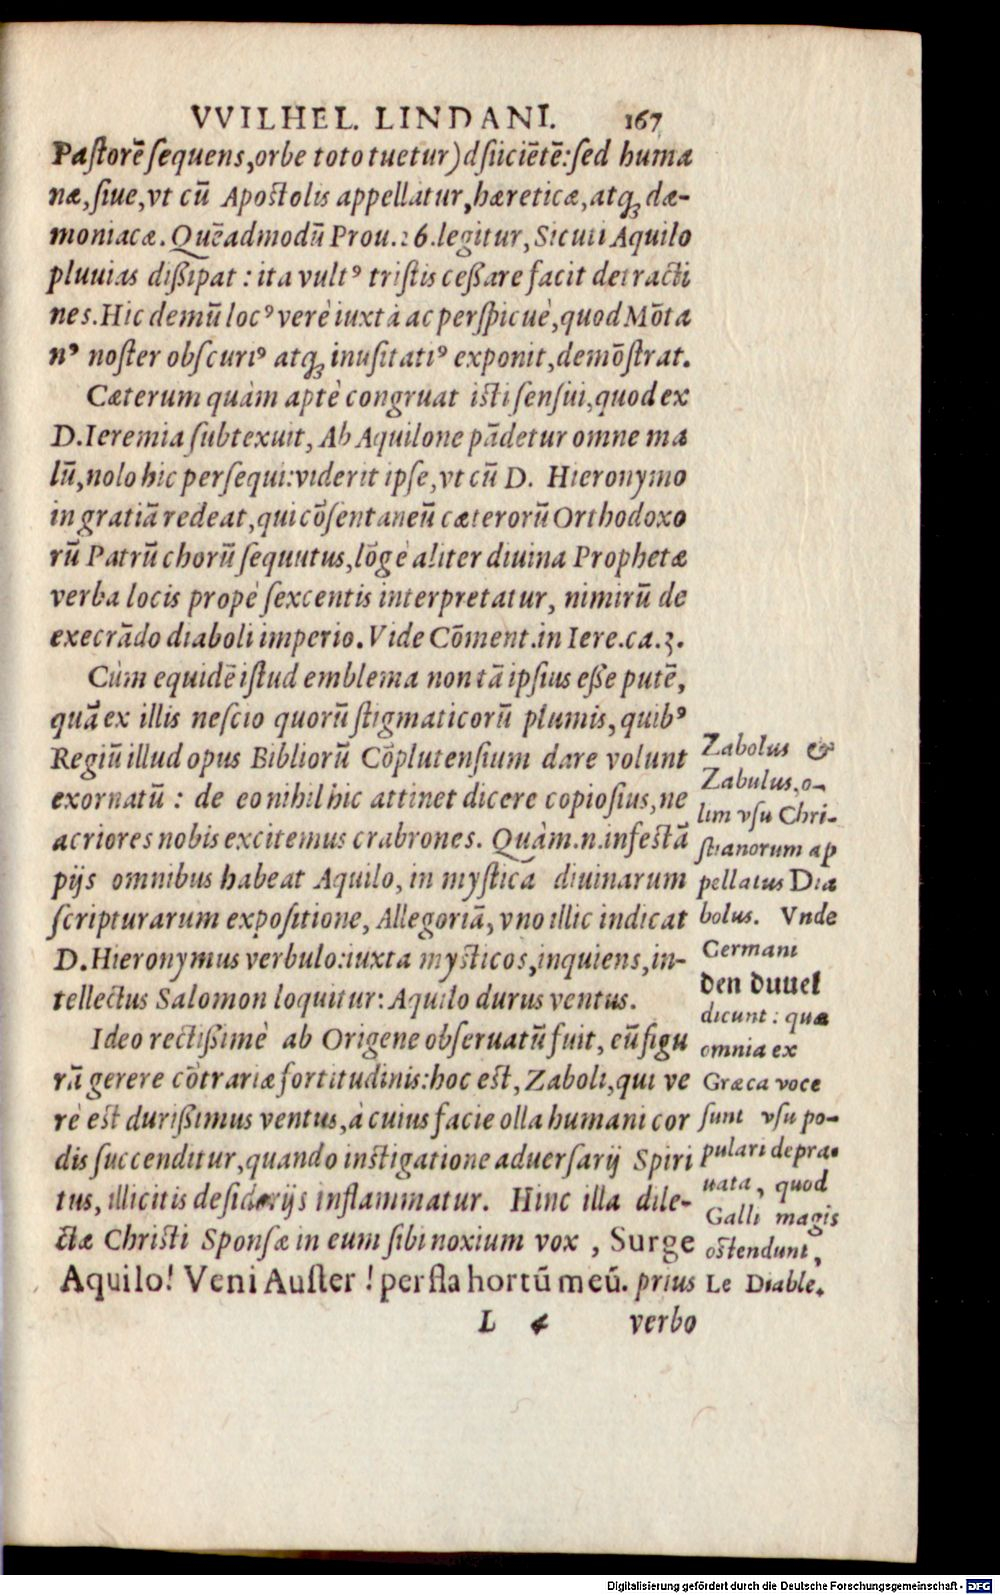 VVILHEL. LINDANI. 167
Pastorē sequens, orbe toto tuetur) dsiiciētē: sed huma
næ, siue, vt cū Apostolis appellatur, hæreticæ, atq; dæ-
moniacæ. Quēadmodū Prou. 26. legitur, Sicuti Aquilo
pluuias dißipat: ita vultꝰ tristis ceßare facit detracti
nes. Hic demū locꝰ verè iuxtà ac perspicuè, quod Mōta
nꝰ noster obscuriꝰ atq; inusitatiꝰ exponit, demōstrat.
Cæterum quàm aptè congruat isti sensui, quod ex
D. Ieremia subtexuit, Ab Aquilone pādetur omne ma
lū, nolo hic persequi: viderit ipse, vt cū D. Hieronymo
in gratiā redeat, qui cōsentaneū cæterorū Orthodoxo
rū Patrū chorū sequutus, lōgè aliter diuina Prophetæ
verba locis propè sexcentis interpretatur, nimirū de
execrādo diaboli imperio. Vide Cōment. in Iere. ca. 3.
Cùm equidē istud emblema non tā ipsius eße putē,
quā ex illis nescio quorū stigmaticorū plumis, quibꝰ
Regiū illud opus Bibliorū Cōplutensium dare volunt
exornatū: de eo nihil hic attinet dicere copiosius, ne
acriores nobis excitemus crabrones. Quàm. n. infestā
pijs omnibus habeat Aquilo, in mystica diuinarum
scripturarum expositione, Allegoriā, vno illic indicat
D. Hieronymus verbulo: iuxta mysticos, inquiens, in-
tellectus Salomon loquitur: Aquilo durus ventus.
Ideo rectißimè ab Origene obseruatū fuit, eū figu
rā gerere cōtrariæ fortitudinis: hoc est, Zaboli, qui ve
rè est durißimus ventus, à cuius facie olla humani cor
dis succenditur, quando instigatione aduersarij Spiri
tus, illicitis desiderijs inflammatur. Hinc illa dile-
ctæ Christi Sponsæ in eum sibi noxium vox, Surge
Aquilo! Veni Auster! persla hortū meū. prius
L 4 verbo
Zabolus &
Zabulus, o-
lim vsu Chri-
stianorum ap
pellatus Dia
bolus. Vnde
Germani
den duuel
dicunt: quæ
omnia ex
Græca voce
sunt vsu po-
pulari depra-
uata, quod
Galli magis
ostendunt,
Le Diable.
Digitalisierung gefördert durch die Deutsche Forschungsgemeinschaft - DFG